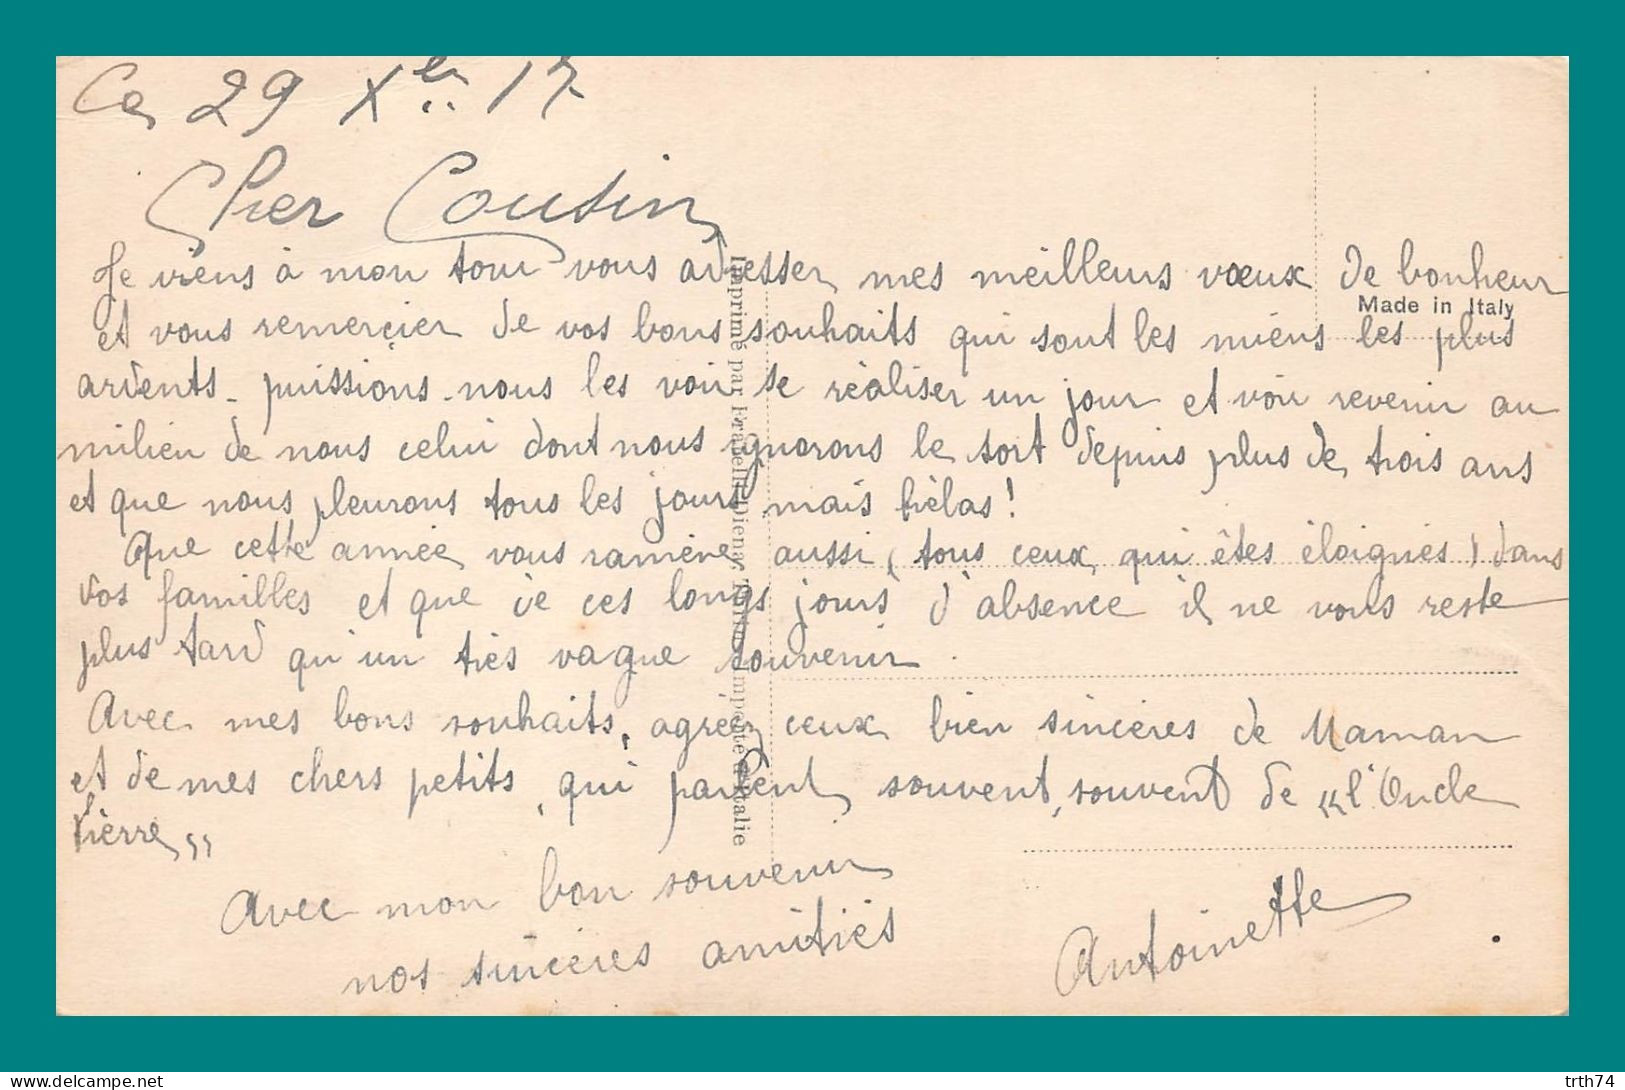 Ce 29 Xbre 17
Cher Cousin
Je viens à mon tour vous adresser mes meilleurs vœux de bonheur
Made in Italy
et vous remercier de vos bons souhaits qui sont les miens les plus
ardents - puissions-nous les voir se réaliser un jour et voir revenir au
milieu de nous celui dont nous ignorons le sort depuis plus de trois ans
et que nous pleurons tous les jours mais hélas!
Que cette année vous ramène aussi (tous ceux qui êtes éloignés) dans
vos familles et que de ces longs jours d'absence il ne vous reste
plus tard qu'un très vague souvenir.
Avec mes bons souhaits, agréez ceux bien sincères de Maman
et de mes chers petits, qui parlent souvent, souvent de "l'Oncle
Pierre"
Avec mon bon souvenir
nos sincères amitiés
Antoinette
Imprimé par Fratelli Diena, Turin Importé d'Italie
trth74